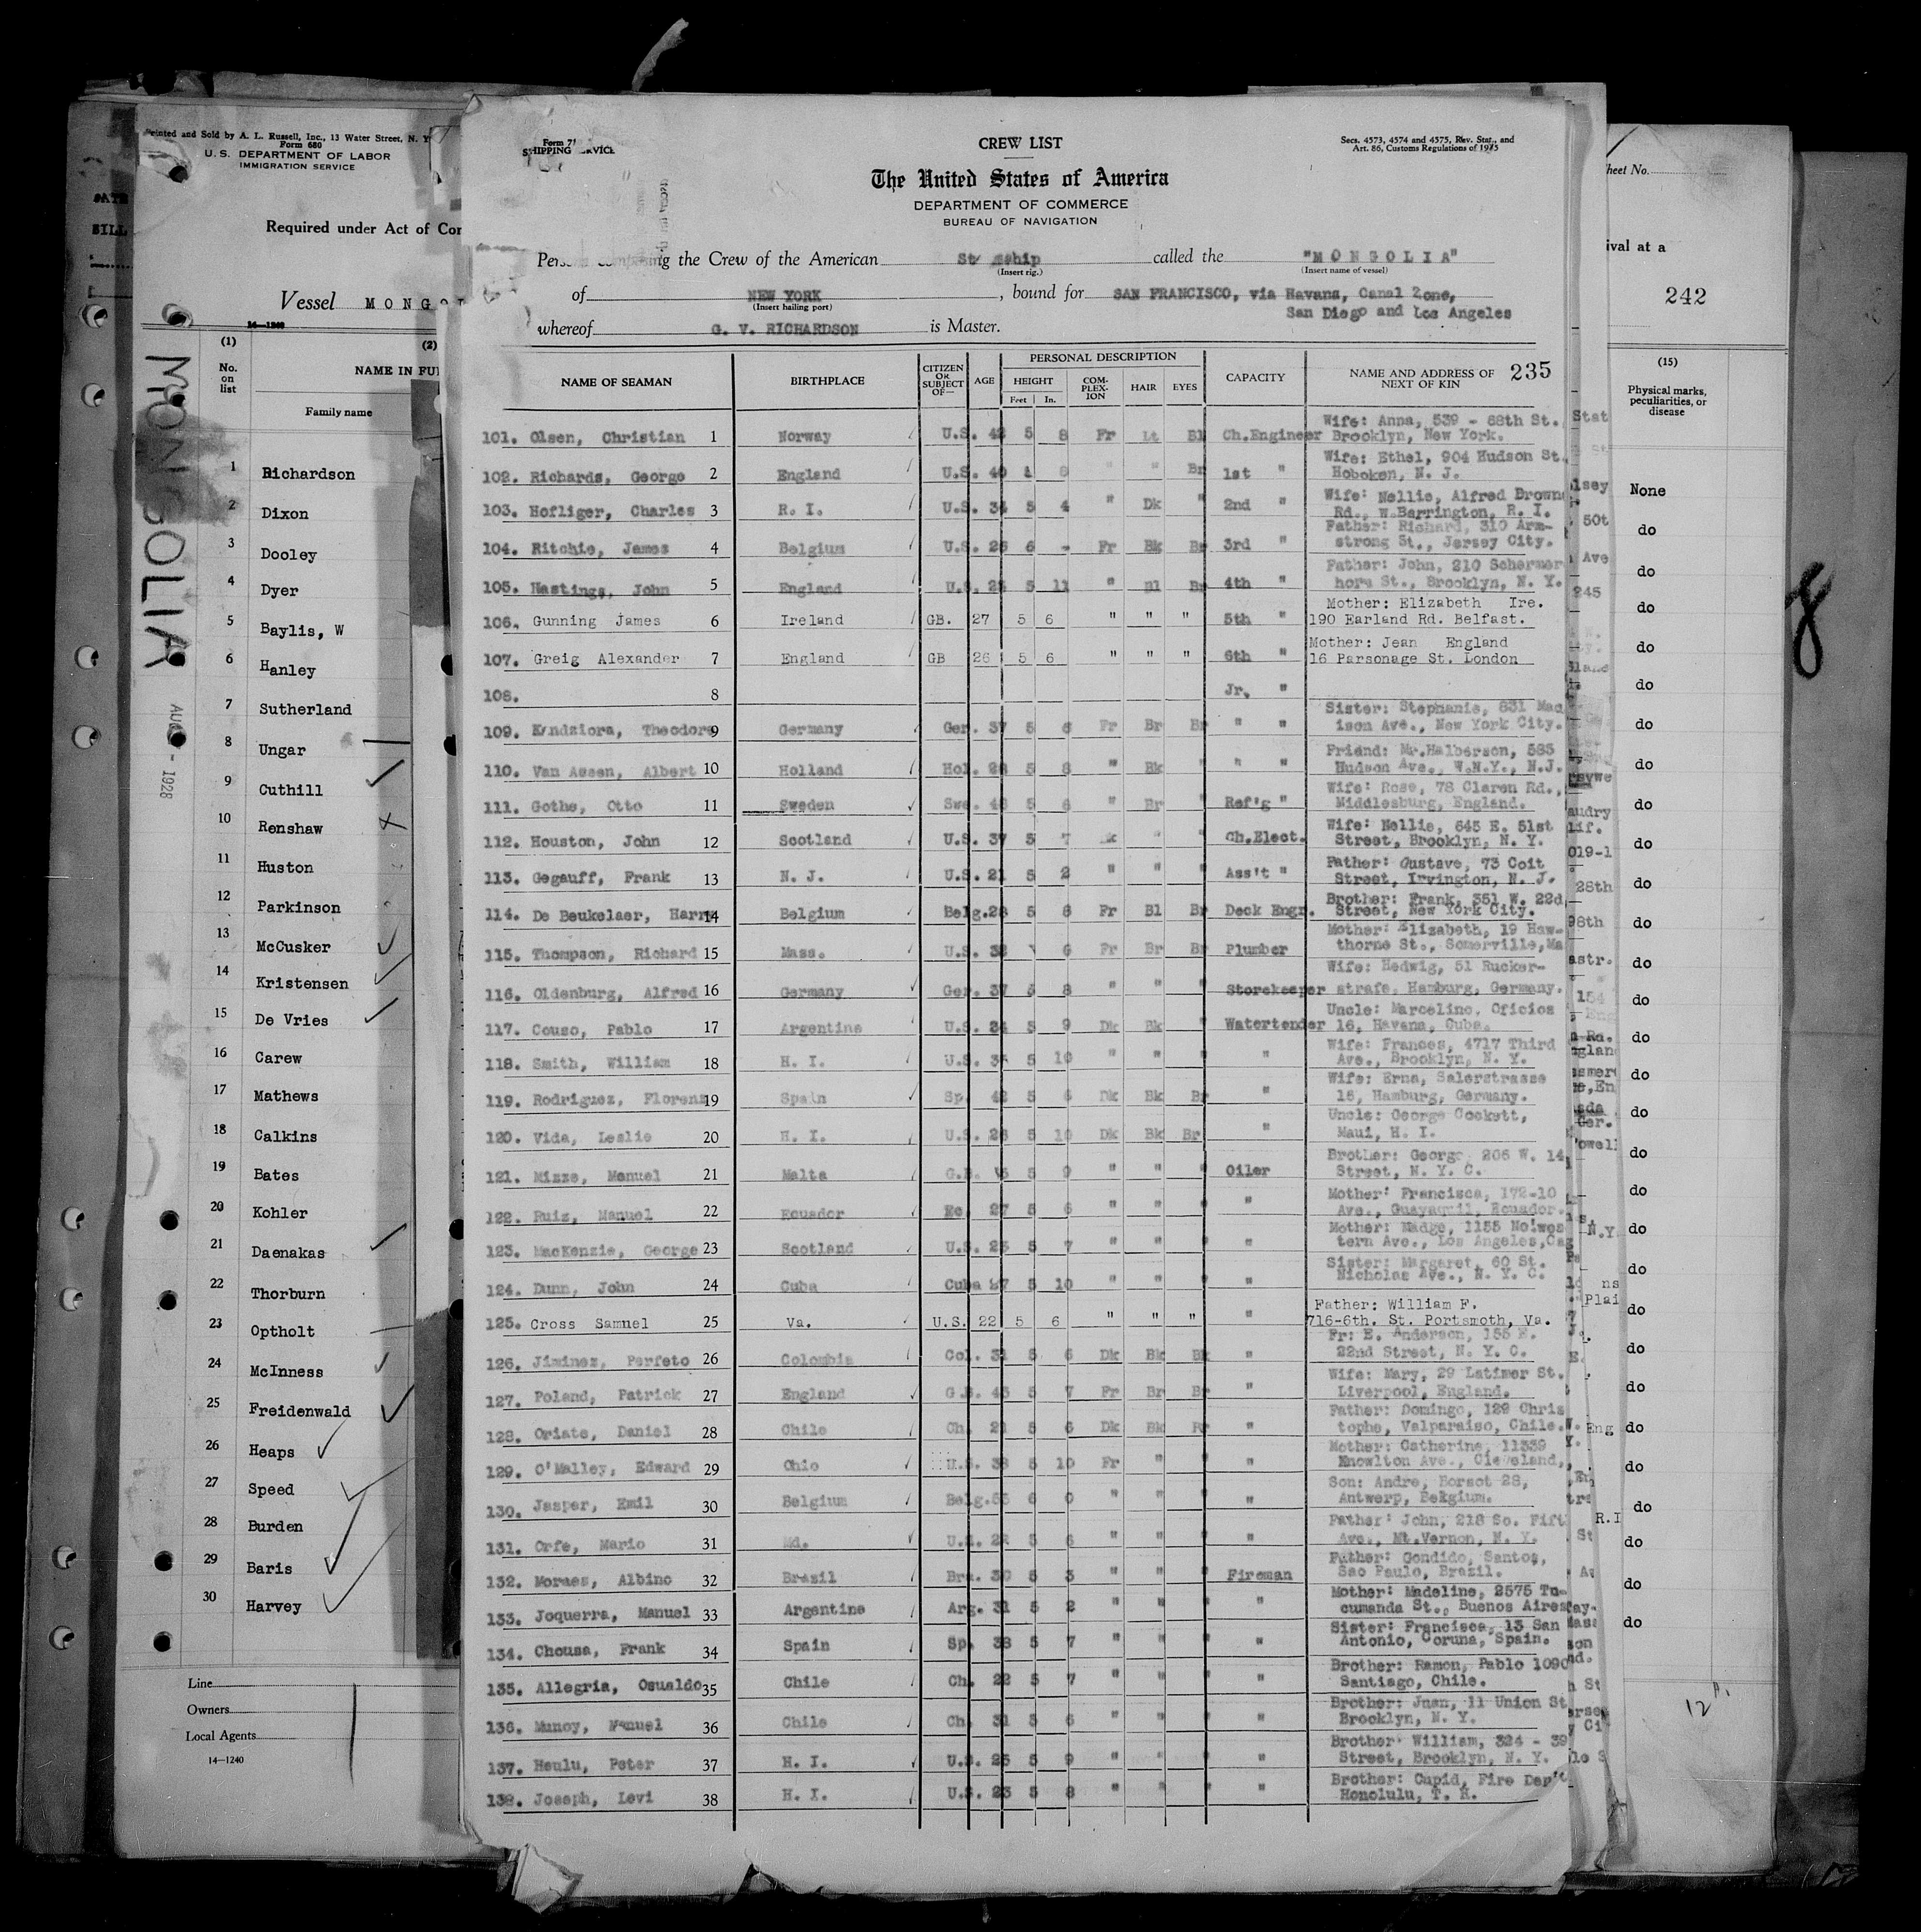 Printed and Sold by A. L. Russell, Inc., 13 Water Street, N. Y.
Form 680
U. S. DEPARTMENT OF LABOR
IMMIGRATION SERVICE
Required under Act of Con
Vessel MONGOL
14—1240
(1) (2)
No. on list
NAME IN FUL
Family name
MONGOLIA
AUG - 1928
1 Richardson
2 Dixon
3 Dooley
4 Dyer
5 Baylis, W
6 Hanley
7 Sutherland
8 Ungar
9 Cuthill
10 Renshaw
11 Huston
12 Parkinson
13 McCusker
14 Kristensen
15 De Vries
16 Carew
17 Mathews
18 Calkins
19 Bates
20 Kohler
21 Daenakas
22 Thorburn
23 Optholt
24 McInness
25 Freidenwald
26 Heaps
27 Speed
28 Burden
29 Baris
30 Harvey
Line
Owners
Local Agents
14—1240
Form 71
SHIPPING SERVICE
CREW LIST
Secs. 4573, 4574 and 4575, Rev. Stat., and
Art. 86, Customs Regulations of 1915
The United States of America
DEPARTMENT OF COMMERCE
BUREAU OF NAVIGATION
the Crew of the American Steamship called the "MONGOLIA"
(Insert rig.) (Insert name of vessel)
of NEW YORK, bound for SAN FRANCISCO, via Havana, Canal Zone,
(Insert hailing port)
San Diego and Los Angeles
whereof G. V. RICHARDSON is Master.
NAME OF SEAMAN BIRTHPLACE CITIZEN OR SUBJECT OF— AGE PERSONAL DESCRIPTION HEIGHT Feet In. COMPLEXION HAIR EYES CAPACITY NAME AND ADDRESS OF NEXT OF KIN 235
101. Olsen, Christian 1 Norway U.S. 42 5 8 Fr Lt Bl Ch.Engineer Wife: Anna, 539 - 88th St. Brooklyn, New York.
102. Richards, George 2 England U.S. 40 8 " " Br 1st " Wife: Ethel, 904 Hudson St. Hoboken, N. J.
103. Hofliger, Charles 3 R. I. U.S. 34 5 4 " Dk 2nd " Wife: Nellie, Alfred Brown Rd., W.Barrington, R. I.
104. Ritchie, James 4 Belgium U.S. 26 6 - Fr Bk Br 3rd " Father: Richard, 310 Arm- strong St., Jersey City.
105. Hastings, John 5 England U.S. 5 11 " Bl Br 4th " Father: John, 210 Schermer horn St., Brooklyn, N. Y.
106. Gunning James 6 Ireland GB. 27 5 6 " " " 5th " Mother: Elizabeth Ire. 190 Earland Rd. Belfast.
107. Greig Alexander 7 England GB 26 5 6 " " " 6th " Mother: Jean England 16 Parsonage St. London
108. 8 Jr. "
109. Kandziora, Theodore 9 Germany Ger. 37 5 6 Fr Br Br " " Sister: Stephanie, 831 Mad ison Ave., New York City.
110. Van Assen, Albert 10 Holland Hol. 5 8 " Bk " " " Friend: Mr.Halberson, 585 Hudson Ave., W.N.Y., N.J.
111. Gothe, Otto 11 Sweden Swe. 5 6 " Br " Ref'g " Wife: Rose, 78 Claren Rd., Middlesburg, England.
112. Houston, John 12 Scotland U.S. 37 5 7 " " Ch.Elect. Wife: Nellie, 645 E. 51st Street, Brooklyn, N. Y.
113. Gegauff, Frank 13 N. J. U.S. 21 5 2 " " " Ass't " Father: Gustave, 73 Coit Street, Irvington, N. J.
114. De Beukelaer, Harry 14 Belgium Belg. 28 5 6 Fr Bl Br Deck Engr. Brother: Frank, 351 W. 22d Street, New York City.
115. Thompson, Richard 15 Mass. U.S. 38 6 Fr Br Br Plumber Mother: Elizabeth, 19 Haw- thorne St., Somerville, Ma
116. Oldenburg, Alfred 16 Germany Ger. 37 5 8 " " " Storekeeper Wife: Hedwig, 51 Rucker- strafe, Hamburg, Germany.
117. Couso, Pablo 17 Argentine U.S. 34 5 9 Dk Bk " Watertender Uncle: Marceline, Oficios 16, Havana, Cuba.
118. Smith, William 18 H. I. U.S. 5 10 " " " Wife: Frances, 4717 Third Ave., Brooklyn, N. Y.
119. Rodriguez, Florenz 19 Spain Sp. 42 5 6 Dk Bk Br " Wife: Erna, Salerstrasse 16, Hamburg, Germany.
120. Vida, Leslie 20 H. I. U.S. 26 5 10 Dk Bk Br " Uncle: George Cockett, Maui, H. I.
121. Mizze, Manuel 21 Malta G.B. 5 9 " " " Oiler Brother: George 206 W. 14 Street, N. Y. C.
122. Ruiz, Manuel 22 Ecuador Ec. 27 5 6 " " " Mother: Francisca, 172-10 Ave., Guayaquil, Ecuador.
123. MacKenzie, George 23 Scotland U.S. 25 5 7 " " " Mother: Madge, 1155 No.Wes tern Ave., Los Angeles, Ca
124. Dunn, John 24 Cuba Cuba 27 5 10 " " " Sister: Margaret, 60 St. Nicholas Ave., N. Y. C.
125. Cross Samuel 25 Va. U.S. 22 5 6 " " " " Father: William F. 716-6th. St. Portsmoth, Va.
126. Jiminez, Perfeto 26 Colombia Col. 31 5 6 Dk Bk Bk " Fr: E. Anderson, 155 E. 22nd Street, N. Y. C.
127. Poland, Patrick 27 England G.B. 45 5 7 Fr Br Br " Wife: Mary, 29 Latimer St. Liverpool, England.
128. Oriate, Daniel 28 Chile Ch. 21 5 6 Dk Bk Br " Father: Domingo, 129 Chris tophe, Valparaiso, Chile.
129. O'Malley, Edward 29 Ohio U.S. 38 5 10 Fr " " Mother: Catherine, 11339 Knowlton Ave., Cleveland,
130. Jasper, Emil 30 Belgium Belg. 6 0 " " " Son: Andre, Borsot 28, Antwerp, Bekgium.
131. Orfe, Mario 31 Md. U.S. 22 5 6 " " " Father: John, 218 So. Fift Ave., Mt.Vernon, N. Y.
132. Moraes, Albino 32 Brazil Bra. 30 5 3 " " Fireman Father: Gondido, Santos, Sao Paulo, Brazil.
133. Joquerra, Manuel 33 Argentine Arg. 31 5 2 " " " Mother: Madeline, 2575 Tu- cumanda St., Buenos Aires
134. Chousa, Frank 34 Spain Sp. 38 5 7 " " " Sister: Francisca, 13 San Antonio, Coruna, Spain.
135. Allegria, Osualdo 35 Chile Ch. 22 5 7 " " " Brother: Ramon, Pablo 1090 Santiago, Chile.
136. Munoy, Manuel 36 Chile Ch. 31 5 6 " " " Brother: Juan, 11 Union St Brooklyn, N. Y.
137. Heulu, Peter 37 H. I. U.S. 25 5 9 " " " Brother William, 324 - 39 Street, Brooklyn, N. Y.
138. Joseph, Levi 38 H. I. U.S. 23 5 8 " " " Brother: Cupid, Fire Dep't Honolulu, T. H.
heet No.
ival at a
242
(15)
Physical marks, peculiarities, or disease
None
do
do
do
do
do
do
do
do
do
do
do
do
do
do
do
do
do
do
do
do
do
do
do
do
do
do
do
do
do
8